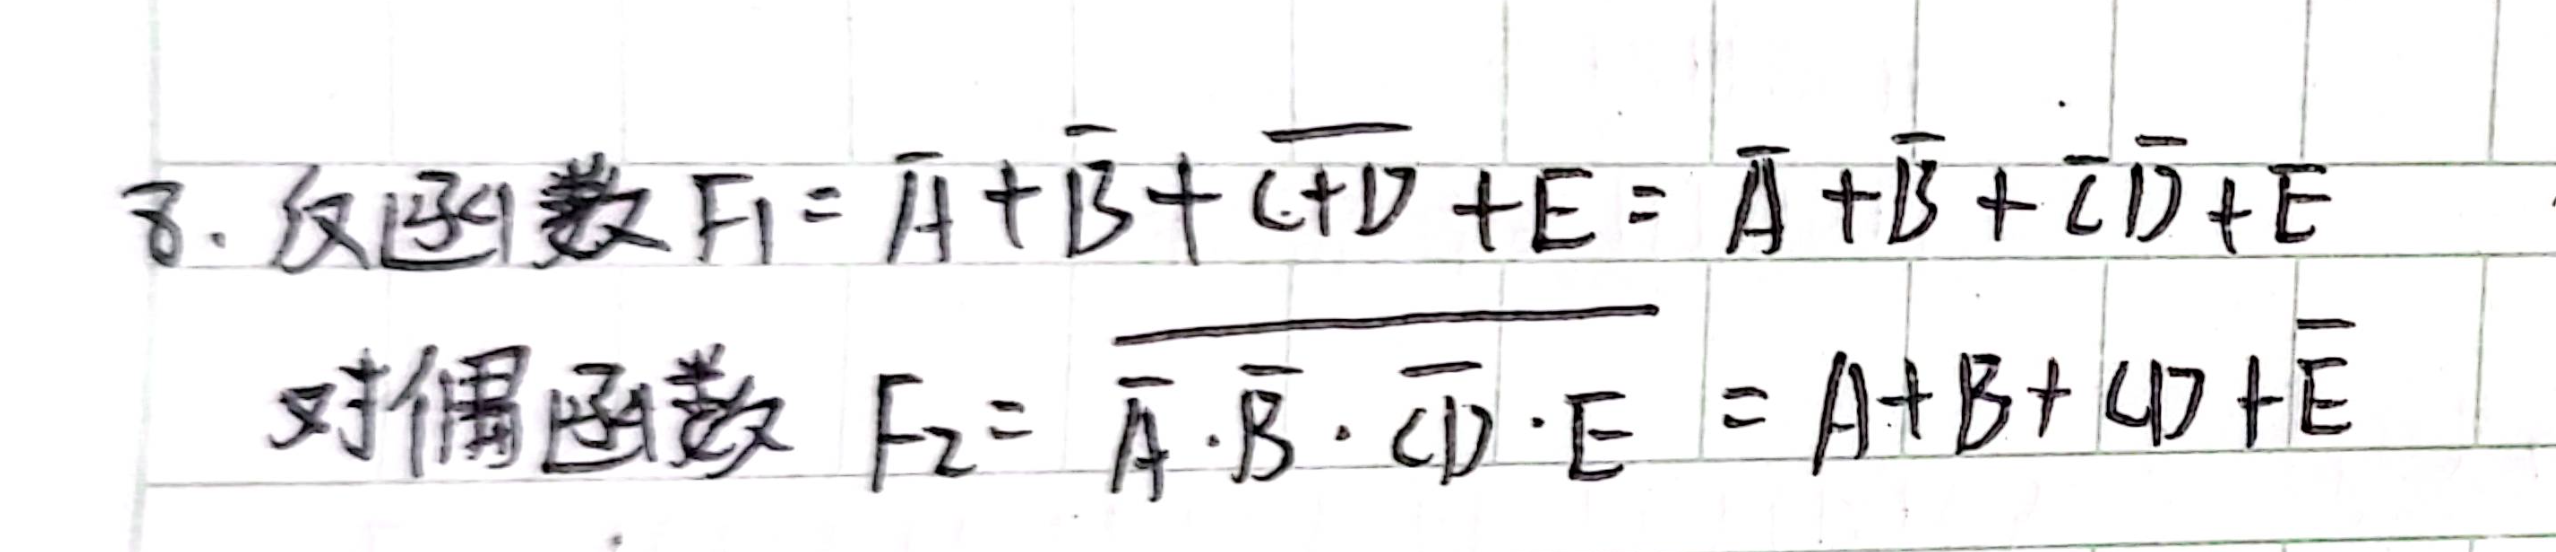 8. 反函数 F₁ = A̅ + B̅ + \overline{C+D} + E = A̅ + B̅ + C̅ D̅ + E̅
对偶函数 F₂ = \overline{A̅ · B̅ · \overline{CD} · E} = A + B + CD + E̅